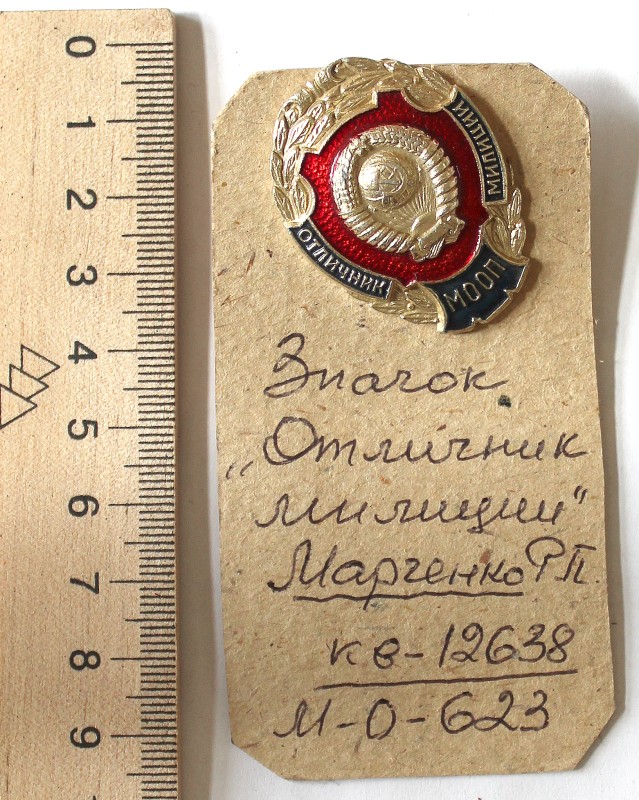 0
1
2
3
4
5
6
7
8
9
ОТЛИЧНИК
МИЛИЦИИ
МООП
Значок
„Отличник
милиции"
Марченко Р.П.
кв-12638
М-О-623